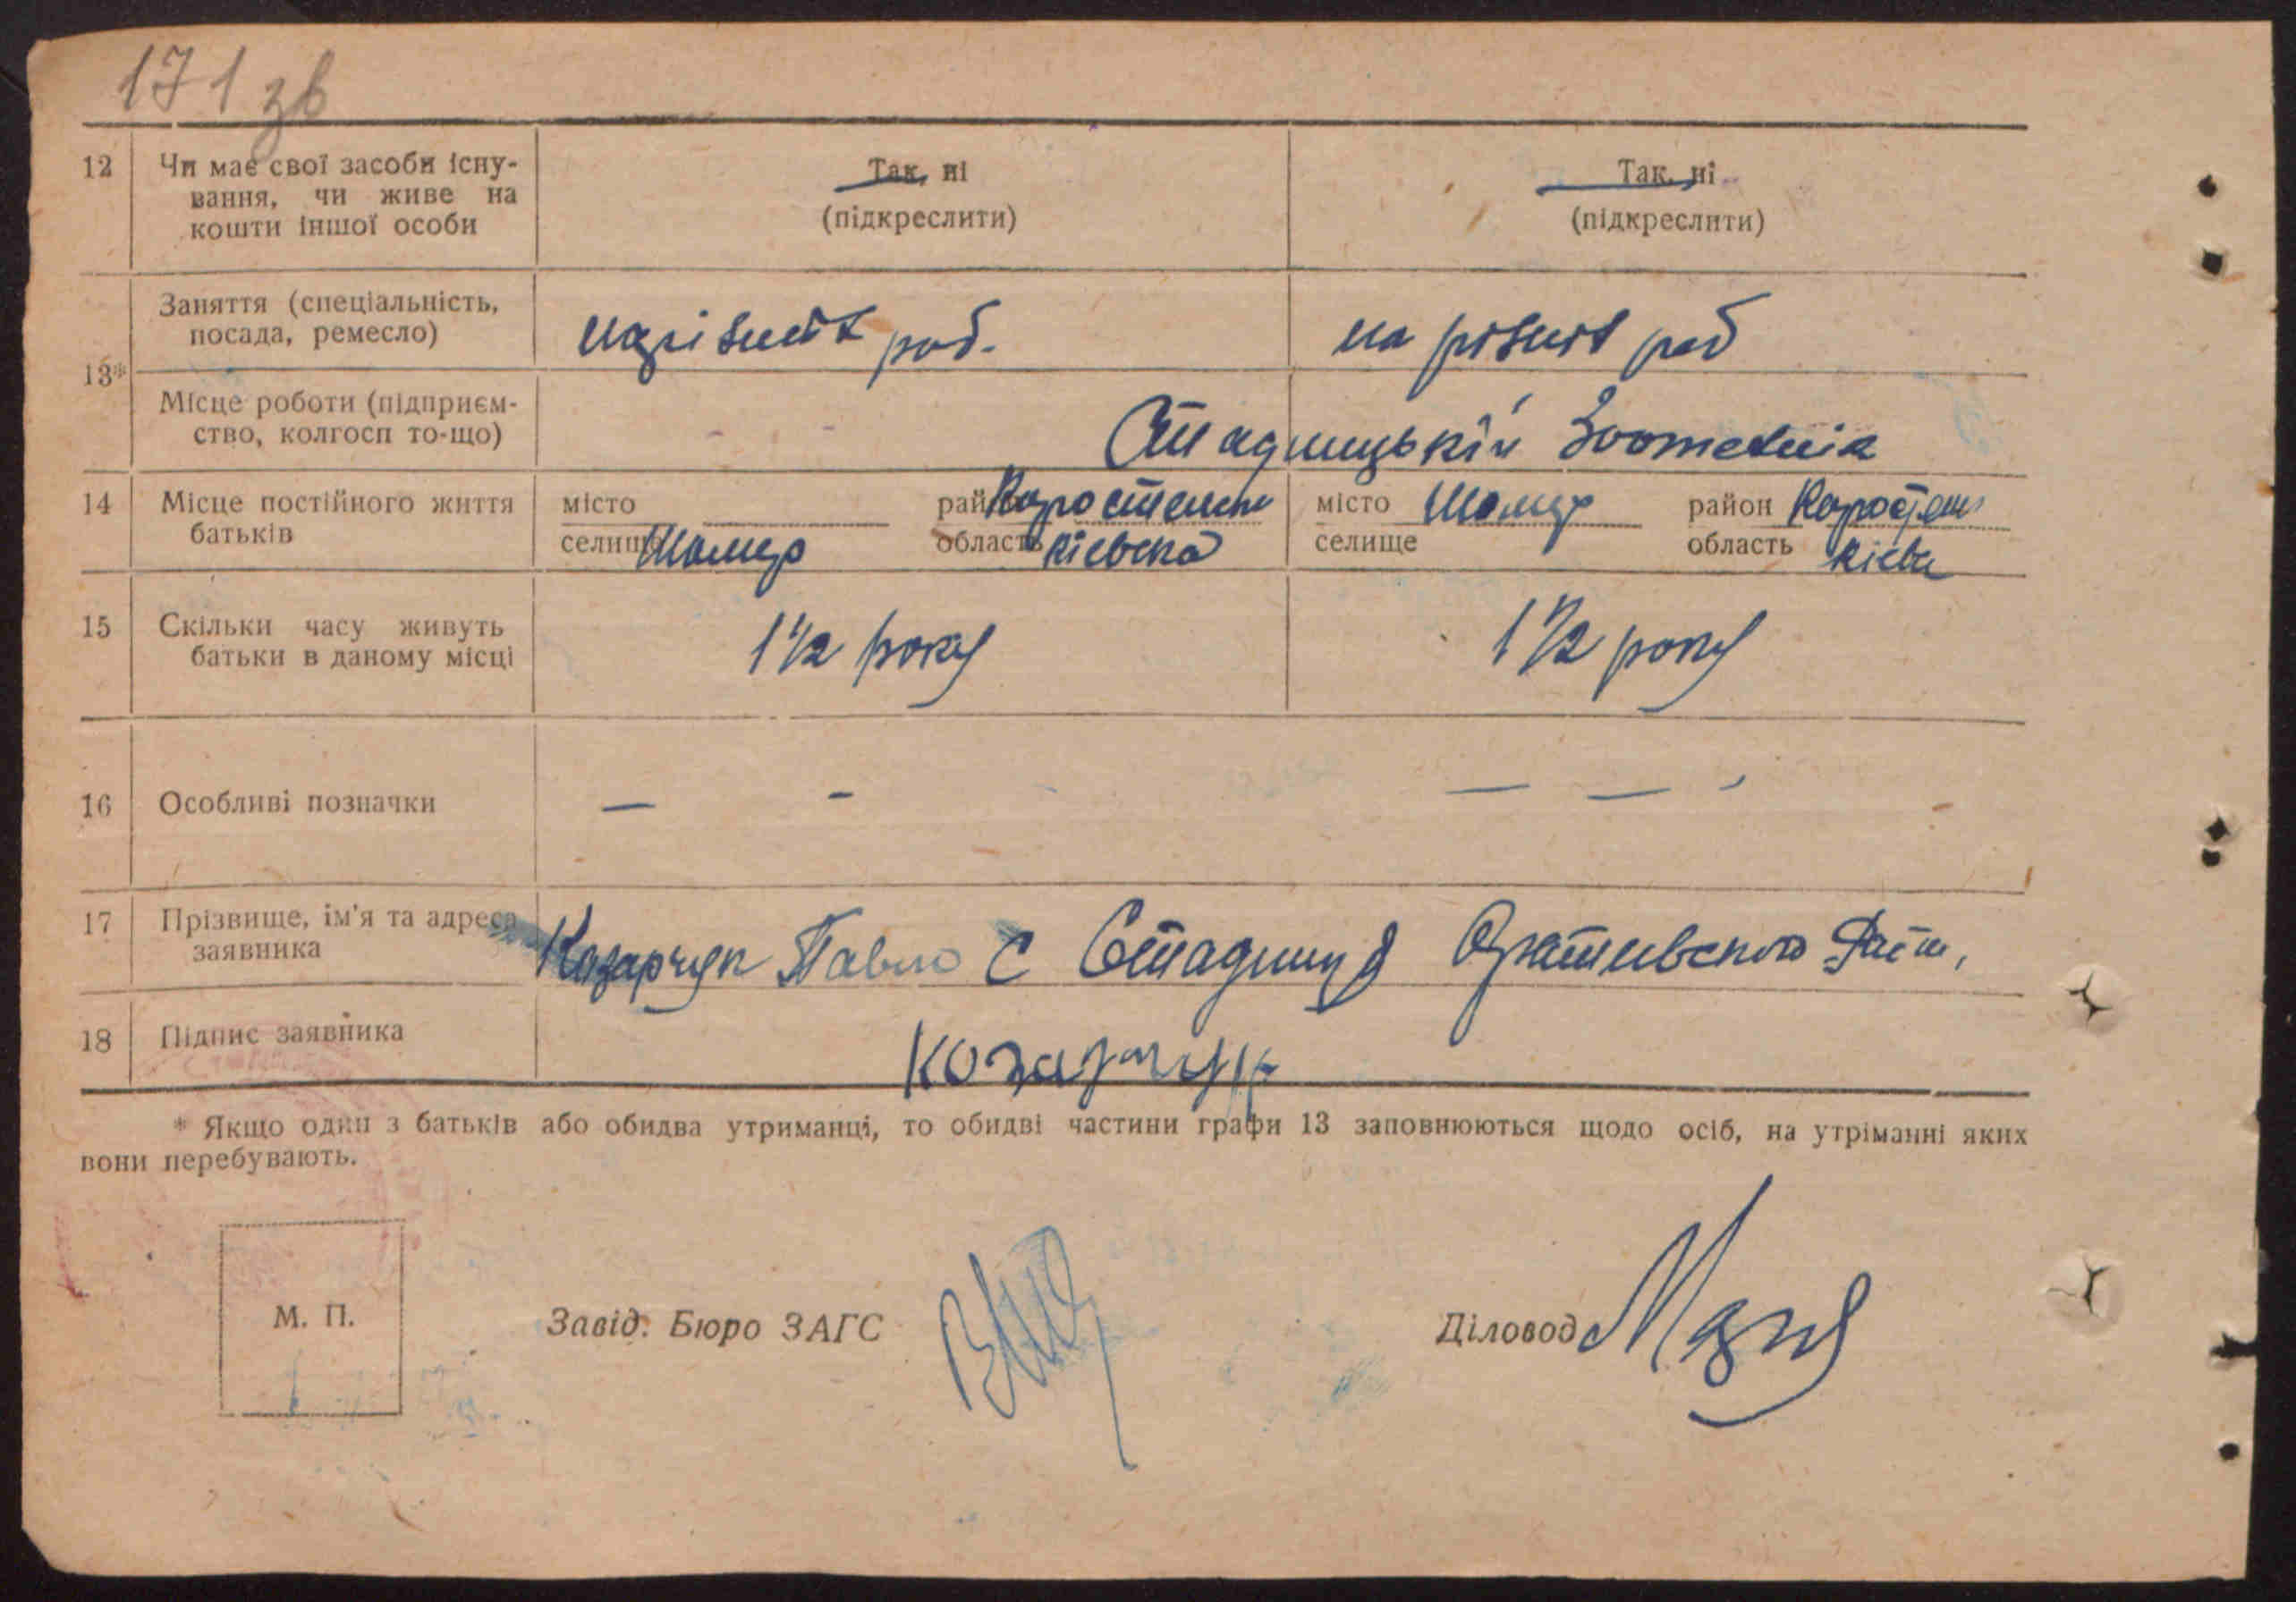 171 зв
12 Чи має свої засоби існу-
вання, чи живе на
кошти іншої особи
Так, ні
(підкреслити)
Так, ні
(підкреслити)
13*
Заняття (спеціальність,
посада, ремесло)
роб.
на роб
Місце роботи (підприєм-
ство, колгосп то-що)
Стадницький Зоотехнік
14 Місце постійного життя
батьків
місто
район
селище
область Кіевска
місто
район
селище
область Кіевс
15 Скільки часу живуть
батьки в даному місці
1 1/2 року
1 1/2 року
16 Особливі позначки
— -
— — -
17 Прізвище, ім'я та адреса
заявника
Козарчук Павло С Стадниця
18 Підпис заявника
Козарчук
* Якщо один з батьків або обидва утриманці, то обидві частини графи 13 заповнюються щодо осіб, на утріманні яких
вони перебувають.
М. П.
Завід. Бюро ЗАГС
Діловод